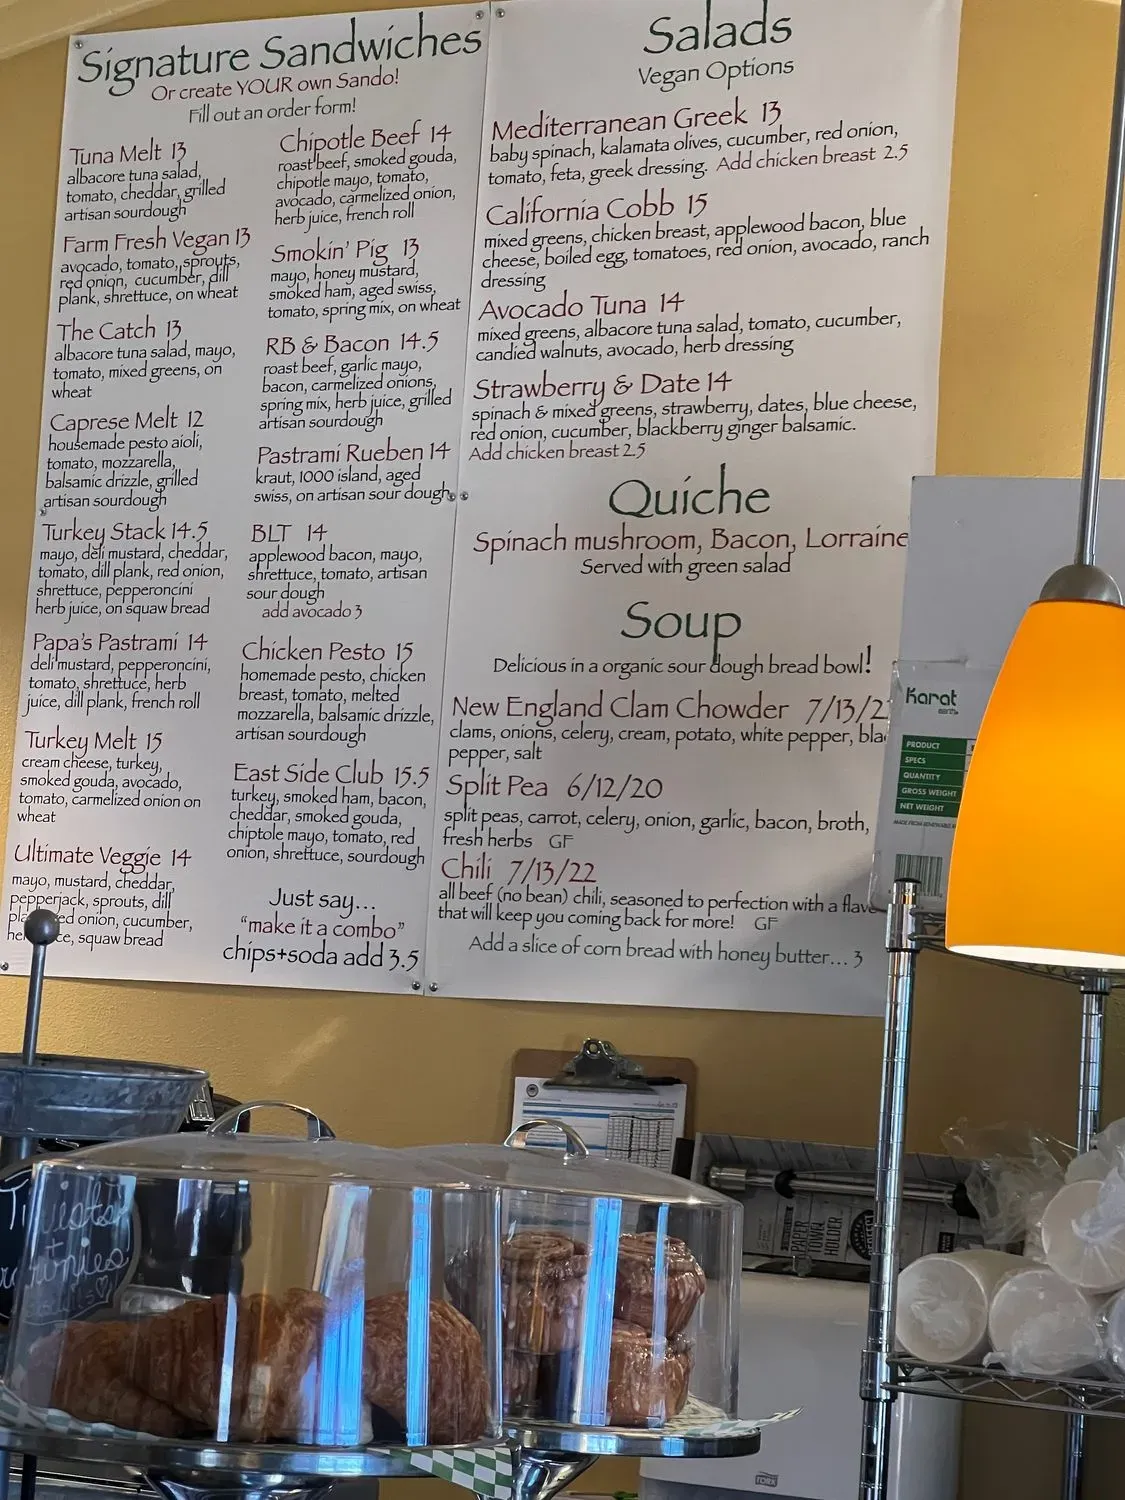 Signature Sandwiches
Or create YOUR own Sando!
Fill out an order form!
Tuna Melt 13
albacore tuna salad,
tomato, cheddar, grilled
artisan sourdough
Farm Fresh Vegan 13
avocado, tomato, sprouts,
red onion, cucumber, dill
plank, shrettuce, on wheat
The Catch 13
albacore tuna salad, mayo,
tomato, mixed greens, on
wheat
Caprese Melt 12
housemade pesto aioli,
tomato, mozzarella,
balsamic drizzle, grilled
artisan sourdough
Turkey Stack 14.5
mayo, deli mustard, cheddar,
tomato, dill plank, red onion,
shrettuce, pepperoncini
herb juice, on squaw bread
Papa's Pastrami 14
deli mustard, pepperoncini,
tomato, shrettuce, herb
juice, dill plank, french roll
Turkey Melt 15
cream cheese, turkey,
smoked gouda, avocado,
tomato, carmelized onion on
wheat
Ultimate Veggie 14
mayo, mustard, cheddar,
pepperjack, sprouts, dill
onion, cucumber,
squaw bread
Chipotle Beef 14
roast beef, smoked gouda,
chipotle mayo, tomato,
avocado, carmelized onion,
herb juice, french roll
Smokin' Pig 13
mayo, honey mustard,
smoked ham, aged swiss,
tomato, spring mix, on wheat
RB & Bacon 14.5
roast beef, garlic mayo,
bacon, carmelized onions,
spring mix, herb juice, grilled
artisan sourdough
Pastrami Rueben 14
kraut, 1000 island, aged
swiss, on artisan sour dough
BLT 14
applewood bacon, mayo,
shrettuce, tomato, artisan
sour dough
add avocado 3
Chicken Pesto 15
homemade pesto, chicken
breast, tomato, melted
mozzarella, balsamic drizzle,
artisan sourdough
East Side Club 15.5
turkey, smoked ham, bacon,
cheddar, smoked gouda,
chiptole mayo, tomato, red
onion, shrettuce, sourdough
Just say...
"make it a combo"
chips+soda add 3.5
Salads
Vegan Options
Mediterranean Greek 13
baby spinach, kalamata olives, cucumber, red onion,
tomato, feta, greek dressing. Add chicken breast 2.5
California Cobb 15
mixed greens, chicken breast, applewood bacon, blue
cheese, boiled egg, tomatoes, red onion, avocado, ranch
dressing
Avocado Tuna 14
mixed greens, albacore tuna salad, tomato, cucumber,
candied walnuts, avocado, herb dressing
Strawberry & Date 14
spinach & mixed greens, strawberry, dates, blue cheese,
red onion, cucumber, blackberry ginger balsamic.
Add chicken breast 2.5
Quiche
Spinach mushroom, Bacon, Lorraine
Served with green salad
Soup
Delicious in a organic sour dough bread bowl!
New England Clam Chowder 7/13/2
clams, onions, celery, cream, potato, white pepper, bla
pepper, salt
Split Pea 6/12/20
split peas, carrot, celery, onion, garlic, bacon, broth,
fresh herbs GF
Chili 7/13/22
all beef (no bean) chili, seasoned to perfection with a flav
that will keep you coming back for more! GF
Add a slice of corn bread with honey butter... 3
Karat
earth
PRODUCT
SPECS
QUANTITY
GROSS WEIGHT
NET WEIGHT
PAPER
TOWEL
HOLDER
TORK